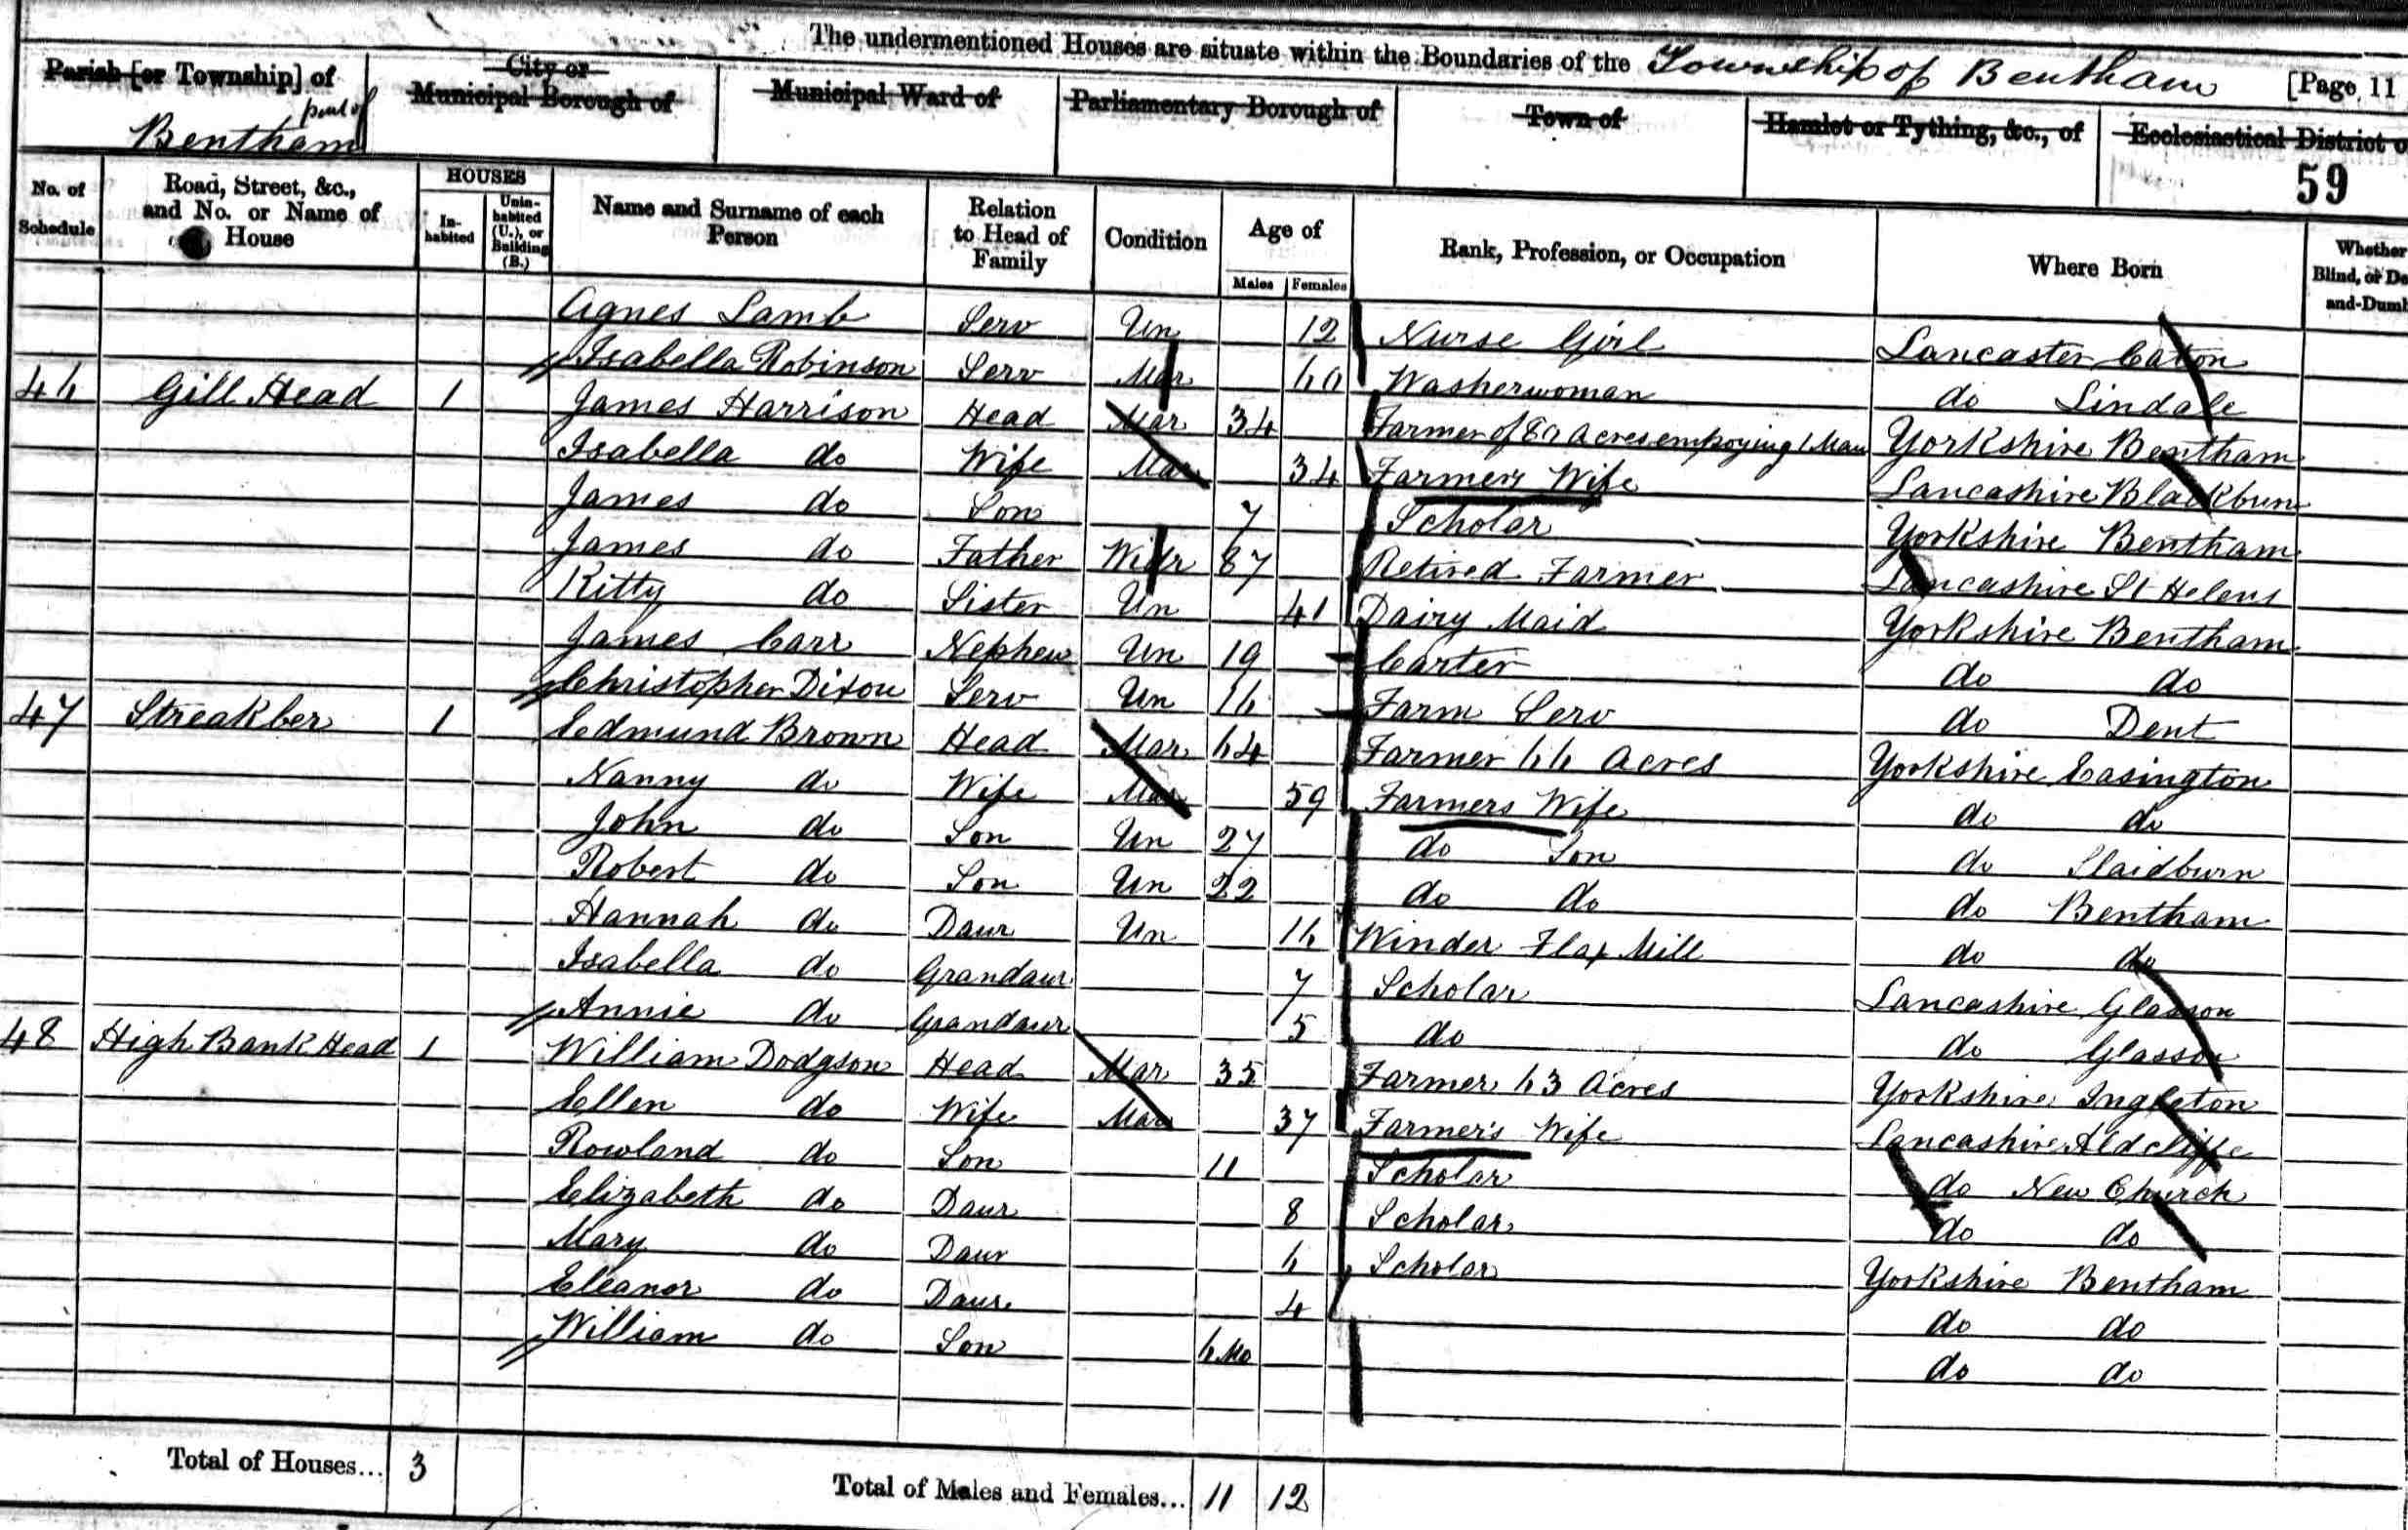 The undermentioned Houses are situate within the Boundaries of the Township of Bentham [Page 11
Parish [or Township] of City or Municipal Borough of Municipal Ward of Parliamentary Borough of Town of Hamlet or Tything, &c., of Ecclesiastical District o
part of
Bentham
59
No. of Schedule Road, Street, &c., and No. or Name of House HOUSES In-habited Unin-habited (U.), or Building (B.) Name and Surname of each Person Relation to Head of Family Condition Age of Males Females Rank, Profession, or Occupation Where Born Whether Blind, or De and-Dumb
Agnes Lamb Serv Un 12 Nurse Girl Lancaster Caton
Isabella Robinson Serv Mar 60 Washerwoman do Lindale
46 Gill Head 1 James Harrison Head Mar 34 Farmer of 80 Acres empoying 1 Man Yorkshire Bentham
Isabella do Wife Mar 34 Farmers Wife Lancashire Blackburn
James do Son 7 Scholar Yorkshire Bentham
James do Father Widr 87 Retired Farmer Lancashire St Helens
Kitty do Sister Un 41 Dairy Maid Yorkshire Bentham
James Carr Nephew Un 19 Carter do do
Christopher Dixon Serv Un 16 Farm Serv do Dent
47 Streakber 1 Edmund Brown Head Mar 64 Farmer 66 Acres Yorkshire Easington
Nanny do Wife Mar 59 Farmers Wife do do
John do Son Un 27 do Son do Slaidburn
Robert do Son Un 22 do do do Bentham
Hannah do Daur Un 16 Winder Flax Mill do do
Isabella do Grandaur 7 Scholar Lancashire Glasson
Annie do Grandaur 5 do do Glasson
48 High Bank Head 1 William Dodgson Head Mar 35 Farmer 63 Acres Yorkshire Ingleton
Ellen do Wife Mar 37 Farmer's Wife Lancashire Aldcliffe
Rowland do Son 11 Scholar do New Church
Elizabeth do Daur 8 Scholar do do
Mary do Daur 6 Scholar Yorkshire Bentham
Eleanor do Daur 4 do do
William do Son 6 Mo do do
Total of Houses... 3 Total of Males and Females... 11 12